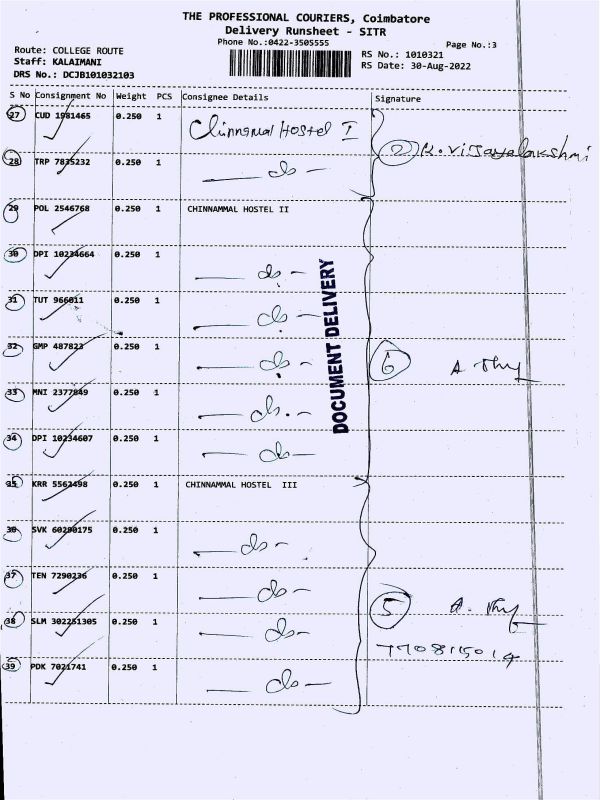 THE PROFESSIONAL COURIERS, Coimbatore
Delivery Runsheet - SITR
Phone No.:0422-3505555
Page No.:3
Route: COLLEGE ROUTE
Staff: KALAIMANI
DRS No.: DCJB101032103
RS No.: 1010321
RS Date: 30-Aug-2022
S No Consignment No Weight PCS Consignee Details Signature
27 CUD 1981465 0.250 1 Chinnamal Hostel I
2 K. Vijayalakshmi
28 TRP 7835232 0.250 1 — do —
29 POL 2546768 0.250 1 CHINNAMMAL HOSTEL II
30 DPI 10234664 0.250 1 — do —
31 TUT 966011 0.250 1 — do —
32 GMP 487823 0.250 1 — do —
6
33 MNI 2377849 0.250 1 — do —
34 DPI 10234607 0.250 1 — do —
DOCUMENT DELIVERY
35 KRR 5562498 0.250 1 CHINNAMMAL HOSTEL III
36 SVK 60290175 0.250 1 — do —
37 TEN 7290236 0.250 1 — do —
5
38 SLM 302251305 0.250 1 — do —
7708115014
39 PDK 7021741 0.250 1 — do —